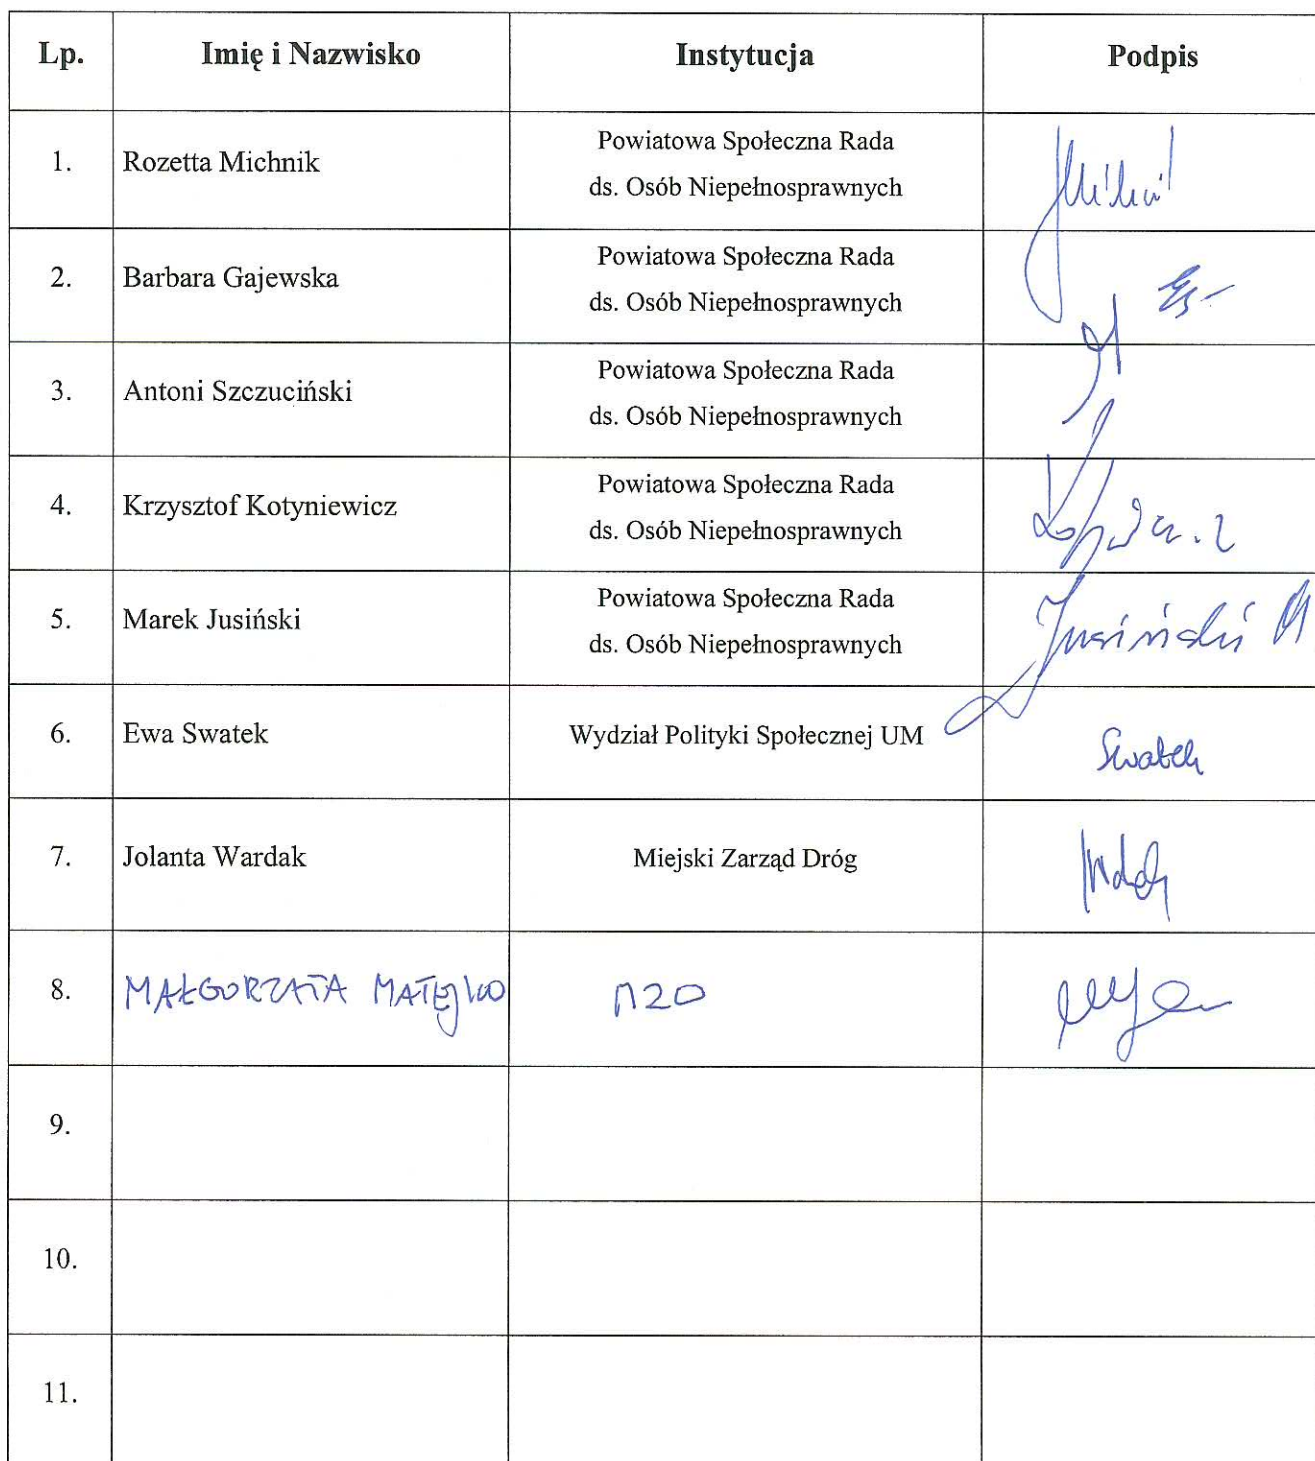 Lp. Imię i Nazwisko Instytucja Podpis
1. Rozetta Michnik Powiatowa Społeczna Rada
ds. Osób Niepełnosprawnych
2. Barbara Gajewska Powiatowa Społeczna Rada
ds. Osób Niepełnosprawnych
3. Antoni Szczuciński Powiatowa Społeczna Rada
ds. Osób Niepełnosprawnych
4. Krzysztof Kotyniewicz Powiatowa Społeczna Rada
ds. Osób Niepełnosprawnych
5. Marek Jusiński Powiatowa Społeczna Rada
ds. Osób Niepełnosprawnych Jusiński M
6. Ewa Swatek Wydział Polityki Społecznej UM Swatek
7. Jolanta Wardak Miejski Zarząd Dróg
8. MAŁGORZATA MATEJKO MZD
9.
10.
11.